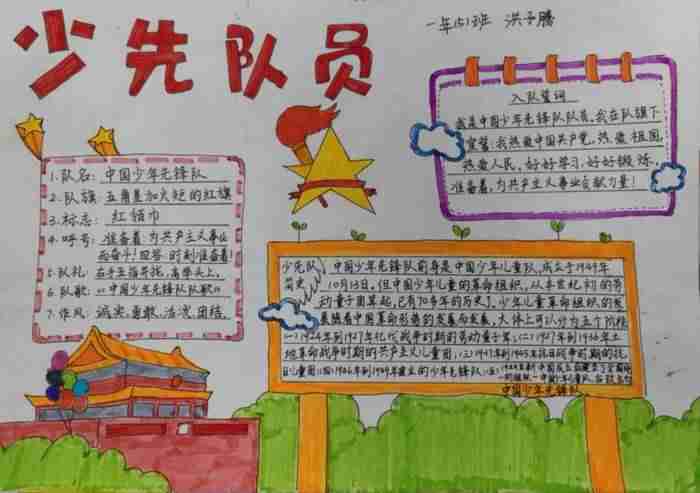 少先队员
一年(5)班 洪子腾
入队誓词
我是中国少年先锋队队员,我在队旗下
宣誓:我热爱中国共产党,热爱祖国,
热爱人民,好好学习,好好锻炼,
准备着,为共产主义事业贡献力量!
1.队名:中国少年先锋队
2.队旗:五角星加火炬的红旗
3.标志:红领巾
4.呼号:准备着,为共产主义事业
而奋斗!回答:时刻准备着!
5.队礼:右手五指并拢,高举头上,
6.队歌:《中国少年先锋队队歌》
7.作风:诚实、勇敢、活泼、团结。
少先队
简史
中国少年先锋队前身是中国少年儿童队,成立于1949年
10月13日,但中国少年儿童的革命组织,从年代初的劳
动童子团算起,已有70多年的历史了,少年儿童组织的发
展随着中国革命形势的发展而发展,大体上可以分为五个阶段
(一)1924年到1927年代战争时期的劳动童子军;(二)1927年到1936年土
地革命战争时期的共产主义儿童团;(三)1937年到1945年抗日战争时期的抗
日儿童团;(四)1946年到1949年建立的少年先锋队;(五)
中国少年先锋队